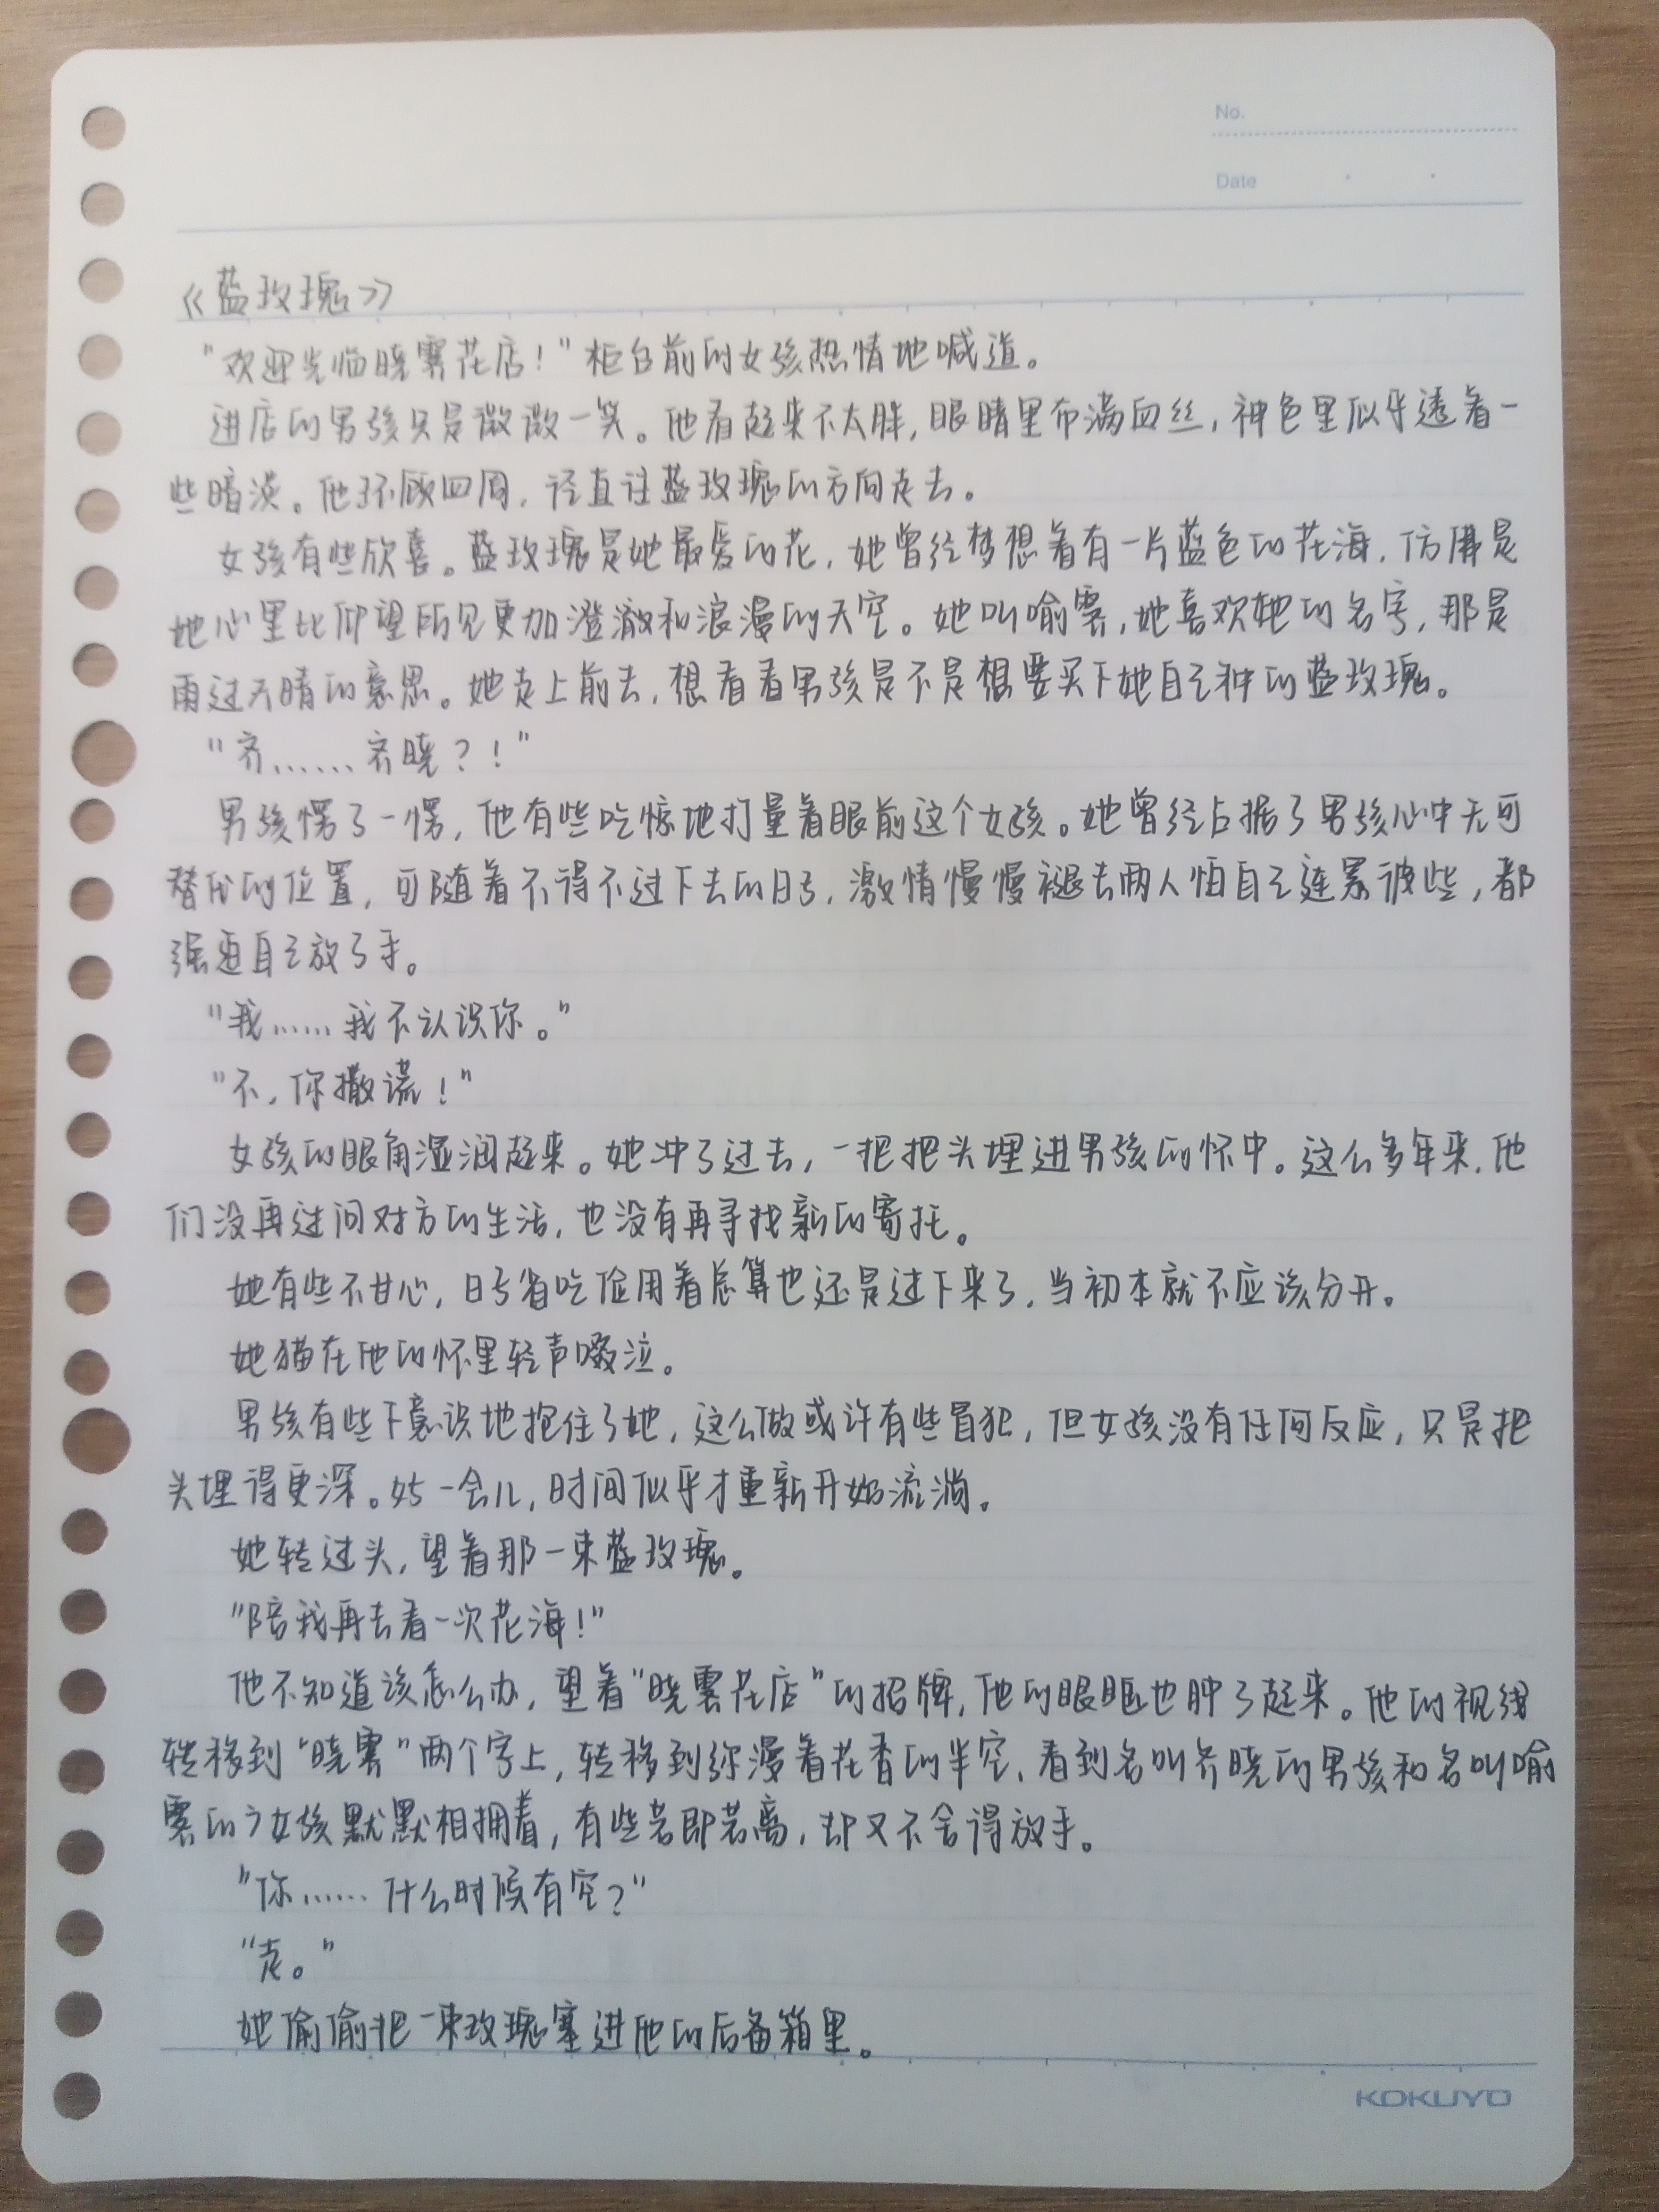 No.
Date
《蓝玫瑰》
"欢迎光临晓霁花店！"柜台前的女孩热情地喊道。
进店的男孩只是微微一笑。他看起来不太胖，眼睛里布满血丝，神色里似乎透着一
些暗淡。他环顾四周，径直往蓝玫瑰的方向走去。
女孩有些欣喜。蓝玫瑰是她最爱的花，她曾经梦想着有一片蓝色的花海，仿佛是
她心里比仰望所见更加澄澈和浪漫的天空。她叫喻霁，她喜欢她的名字，那是
雨过天晴的意思。她走上前去，想看看男孩是不是想要买下她自己种的蓝玫瑰。
"齐……齐晓？！"
男孩愣了一愣，他有些吃惊地打量着眼前这个女孩。她曾经占据了男孩心中无可
替代的位置，可随着不得不过下去的日子，激情慢慢褪去两人怕自己连累彼些，都
强迫自己放了手。
"我……我不认识你。"
"不，你撒谎！"
女孩的眼角湿润起来。她冲了过去，一把把头埋进男孩的怀中。这么多年来，他
们没再过问对方的生活，也没有再寻找新的寄托。
她有些不甘心，日子省吃俭用着总算也还是过下来了，当初本就不应该分开。
她猫在他的怀里轻声啜泣。
男孩有些下意识地抱住了她，这么做或许有些冒犯，但女孩没有任何反应，只是把
头埋得更深。好一会儿，时间似乎才重新开始流淌。
她转过头，望着那一束蓝玫瑰。
"陪我再去看一次花海！"
他不知道该怎么办，望着"晓霁花店"的招牌，他的眼眶也肿了起来。他的视线
转移到"晓霁"两个字上，转移到弥漫着花香的半空，看到名叫齐晓的男孩和名叫喻
霁的女孩默默相拥着，有些若即若离，却又不舍得放手。
"你……什么时候有空？"
"走。"
她偷偷把一束玫瑰塞进他的后备箱里。
KOKUYO